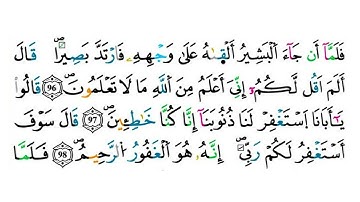 فَلَمَّا أَن جَاءَ الْبَشِيرُ أَلْقَىٰهُ عَلَىٰ وَجْهِهِ فَارْتَدَّ بَصِيرًا قَالَ
أَلَمْ أَقُل لَّكُمْ إِنِّي أَعْلَمُ مِنَ اللَّهِ مَا لَا تَعْلَمُونَ (96) قَالُوا
يَا أَبَانَا اسْتَغْفِرْ لَنَا ذُنُوبَنَا إِنَّا كُنَّا خَاطِئِينَ (97) قَالَ سَوْفَ
أَسْتَغْفِرُ لَكُمْ رَبِّي إِنَّهُ هُوَ الْغَفُورُ الرَّحِيمُ (98) فَلَمَّا